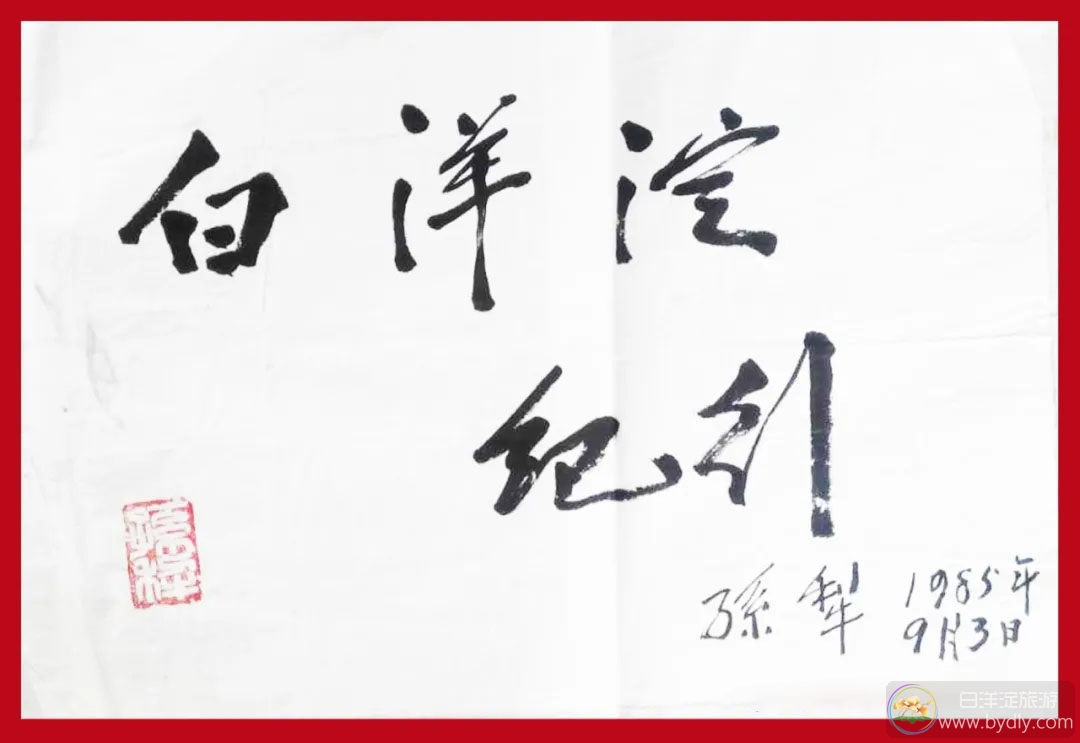 白洋淀
纪引
孫犁 1985年
9月3日
白洋淀旅游
www.bydly.com